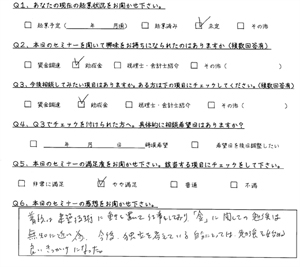 Q1. あなたの現在の起業状況をお聞かせ下さい。
□ 起業予定( 年 月頃) □ 起業済み ☑ 未定 □ その他
Q2. 本日のセミナーを聞いて興味をお持ちになられたのはありますか(複数回答有)
□ 資金調達 ☑ 助成金 □ 税理士・会計士紹介 □ その他( )
Q3. 今後相談してみたい項目はありますか。ある方は下の項目にチェックしてください。(複数回答有)
□ 資金調達 ☑ 助成金 □ 税理士・会計士紹介 □ その他( )
Q4. Q3でチェックを付けられた方へ。具体的に相談希望日はありますか?
□ 年 月 日 時頃希望 □ 希望日を後日調整したい
Q5. 本日のセミナーの満足度をお聞かせ下さい。該当する項目にチェックをして下さい。
□ 非常に満足 ☑ やや満足 □ 普通 □ 不満
Q6. 本日のセミナーの感想をお聞かせ下さい。
普段は に重きを置いて仕事をしており「金」に関しての勉強は
無知に近い為、今後、独立を考えている自分にとっては、知識を
良いきっかけになった。